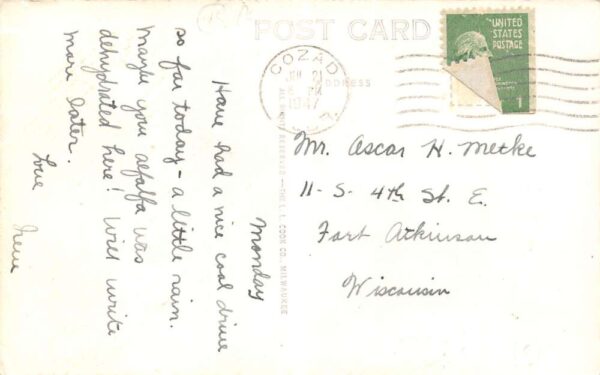 POST CARD
ADDRESS
COZAD
JUL 21
PM
1947
UNITED
STATES
POSTAGE
1
Mr. Oscar H. Metke
11- S- 4th St. E.
Fort Atkinson
Wisconsin
Monday
Have had a nice cool drive
so far today - a little rain.
Maybe your alfalfa was
dehydrated here! Will write
more later.
Love
Irene
THE L. L. COOK CO., MILWAUKEE